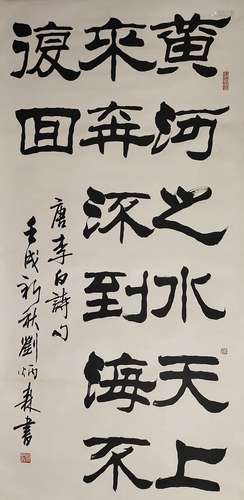 黄河之水天上
來奔流到海不
復回
唐李白詩句
壬戌新秋劉炳森書